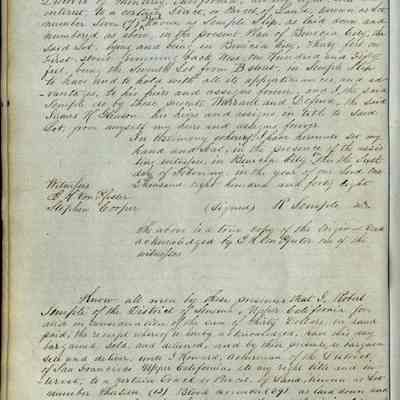 District of Sonoma, Upper California, all my right and
interest to a certain Tract, or Parcel of Land, known as Lot
number Seven (7) known as Semple Slip, as laid down and
numbered as above, in the present Plan of Benicia City, the
Said Lot, lying and being in Benicia City, Thirty feet on
First Street running back West One Hundred and Fifty
feet, being the Seventh Lot from B Street, in Semple Slip
to have and to hold with all its appurtenances and ad-
vantages, to his heirs and assigns forever, and I the said
Semple do by these presents Warrant and Defend, the said
James H. his heirs and assigns in title to Said
Lot, from myself my heirs and assigns forever.
In testimony whereof I have hereunto set my
hand and Seal, in the presence of the assis-
ting witnesses, in Benicia City This the first
day of February, in the year of our Lord One
Thousand eight hundred and forty eight
Witnesses
E. H. Von Pfister
Stephen Cooper (Signed) R Semple
the above is a true copy of the Original and
acknowledged by E H Von Pfister one of the
witnesses
Know all men by these presents that I, Robert
Semple of the District of Sonoma, Upper California, for
and in consideration of the sum of thirty Dollars, in hand
paid, the receipt whereof is hereby acknowledged, have this day
bargained, Sold, and delivered, and by these presents, do bargain
Sell and deliver, unto J Howard, Ackerman of the District,
of San Francisco Upper California, all my right title and in-
terest, to a certain Tract or Parcel of Land, known as Lot
number thirteen (13) Block as laid down and